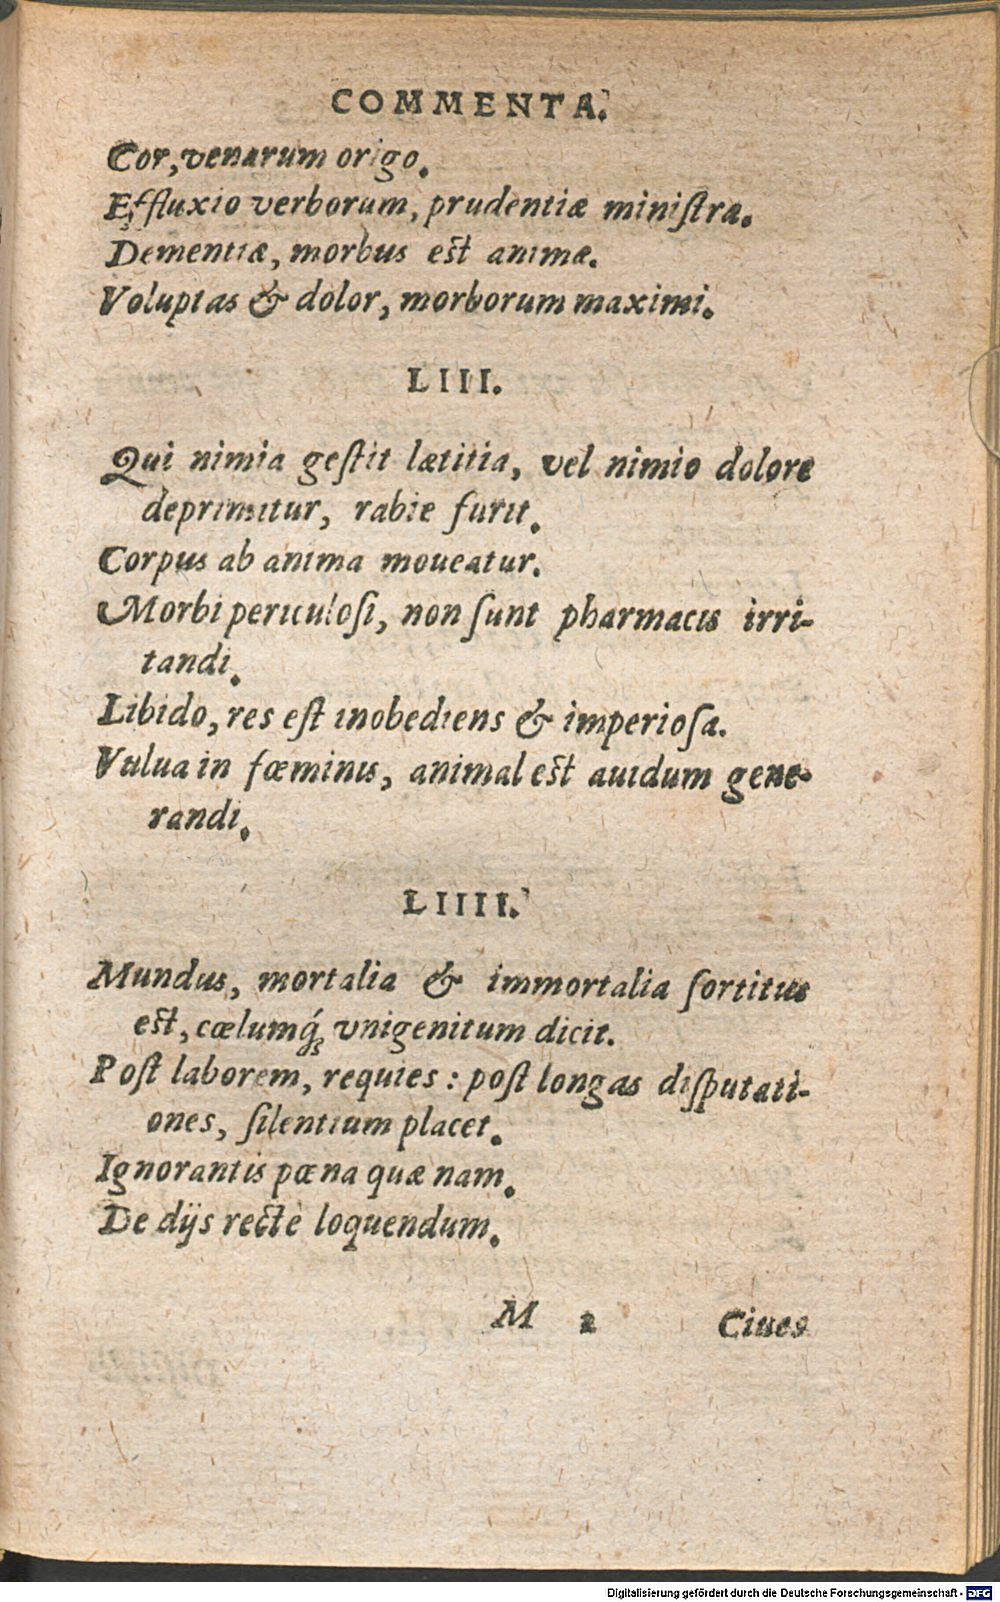 COMMENTA.
Cor, venarum origo.
Effluxio verborum, prudentiæ ministra.
Dementiæ, morbus est animæ.
Voluptas & dolor, morborum maximi.
LIII.
Qui nimia geſtit lætitia, vel nimio dolore
deprimitur, rabie furit.
Corpus ab anima moueatur.
Morbi periculoſi, non ſunt pharmacis irri-
tandi.
Libido, res eſt inobediens & imperioſa.
Vulua in fœminis, animal est auidum gene-
randi.
LIIII.
Mundus, mortalia & immortalia ſortitus
est, cœlumq́; vnigenitum dicit.
Poſt laborem, requies: poſt longas diſputati-
ones, ſilentium placet.
Ignorantis pœna quæ nam.
De dijs rectè loquendum.
M 2 Ciues
Digitalisierung gefördert durch die Deutsche Forschungsgemeinschaft - DFG